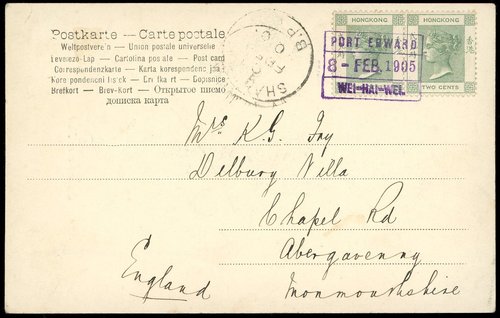 Postkarte — Carte postale
Weltpostverein — Union postale universelle
Levelező-Lap — Cartolina postale — Post card
Correspondenzkarte — Karta korespondencyjna
Kore pondenční lístek — Dopisnice
Brefkort — Brev-Kort — Открытое письмо
дописка карта
HONGKONG HONGKONG
TWO CENTS
PORT EDWARD
8 - FEB. 1905
WEI-HAI-WEI.
SHA
B.P.
Mrs K.G.
Delbury Villa
Chapel Rd
Abergavenny
England Monmouthshire